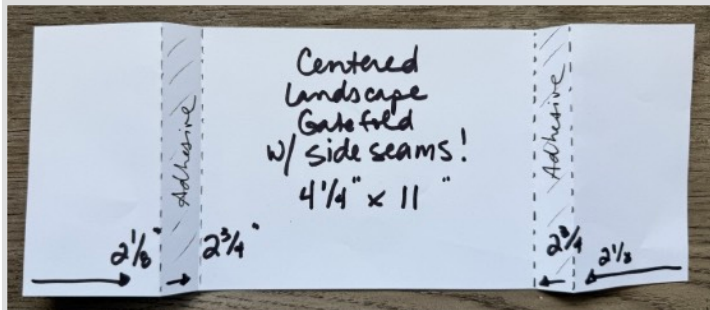 Centered
Landscape
Gatefold
w/ side seams!
4 1/4" x 11"
Adhesive
Adhesive
2 1/8"
2 3/4"
2 3/4
2 1/8